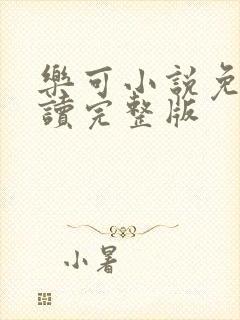 樂可小說免
讀完整版
小暑